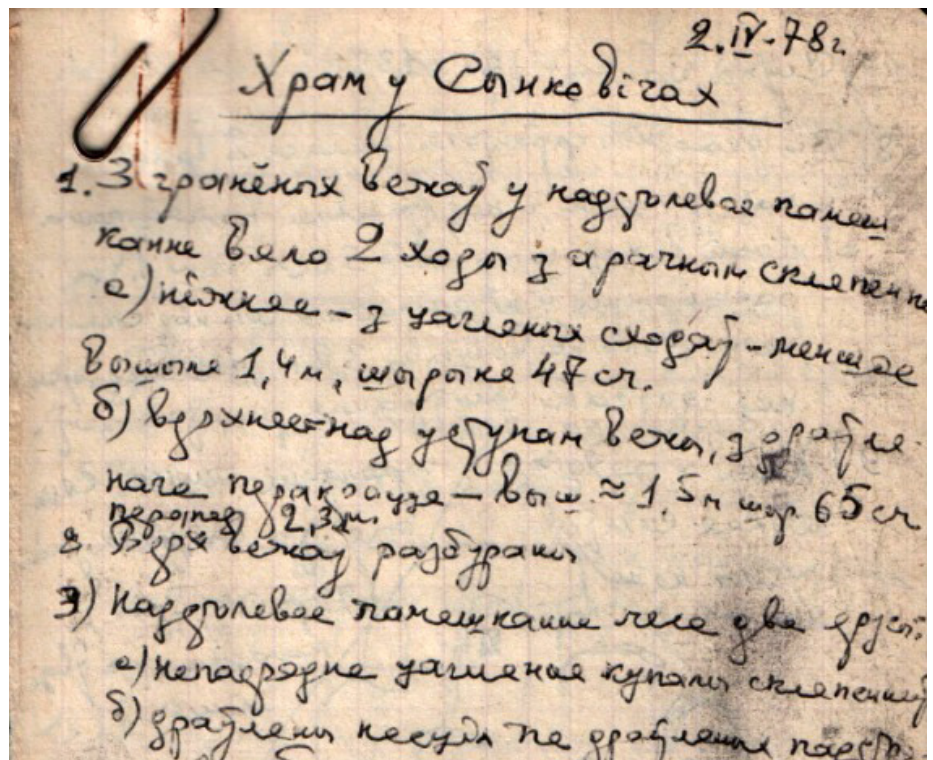 2.IV.78г.
Храм у Сынковічах
1. З гранёных вежаў у наддолевае памеш
канне вяло 2 ходы з арачным скляпенне
а) ніжняе – з цагляных сходаў – меншае
Вышыня 1,4 м, шырыня 47 см.
б) вярхнее – над уступам вежы, з драўля
нага перакрыцця – выш. ≈ 1.5 м шыр. 65 см
перапад 2,3 м.
2. Верх вежаў разбураны
3) Наддолевае памешканне мела два ярусы:
а) непасрэдна цагляныя купалы скляпенняў
б) драўляны на драўляных